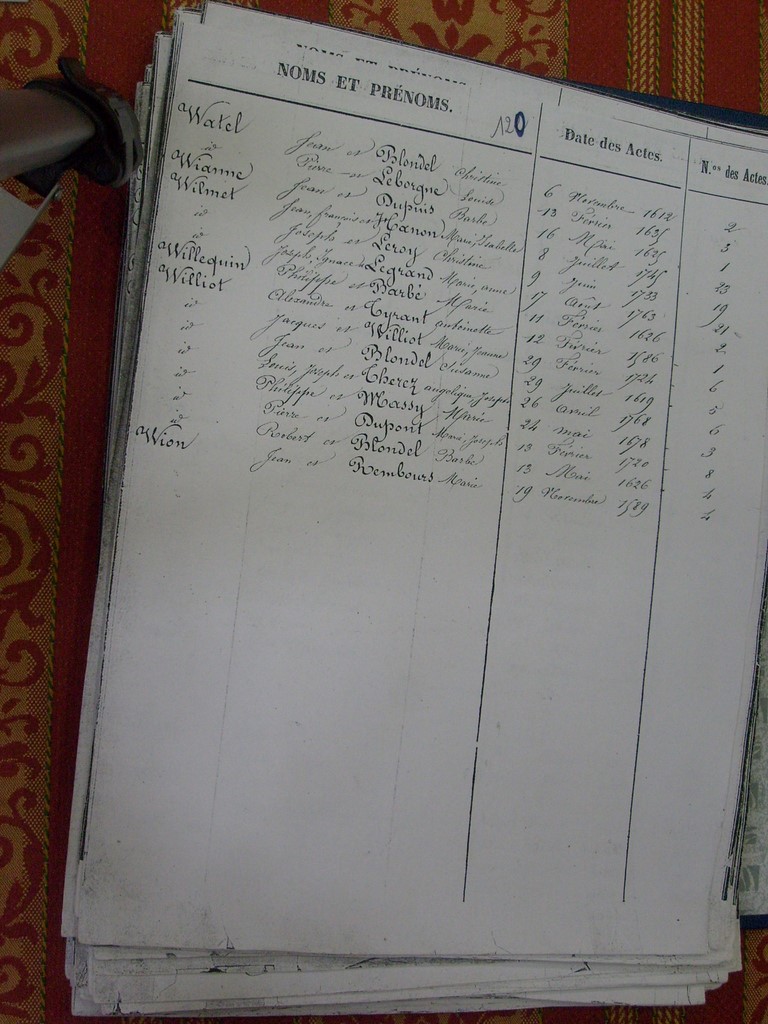 NOMS ET PRÉNOMS. 120 Date des Actes. N.os des Actes.
Watel Jean et Blondel Christine 6 Novembre 1612 2
id Pierre et Leborgne Louise 13 Février 1635 5
Wianne Jean et Dupuis Barbe 16 Mai 1625 1
Wilmet Jean françois et Hanon Marie, Isabelle 8 Juillet 1745 23
id Joseph et Leroy Christine 9 Juin 1733 19
id Joseph, Ignace et Legrand Marie, anne 17 Août 1763 21
Willequin Philippe et Barbé Marie 11 Février 1626 2
Williot Alexandre et Tyrant antoinette 12 Février 1586 1
id Jacques et Williot Marie, Jeanne 29 Février 1724 6
id Jean et Blondel Susanne 29 Juillet 1619 5
id Louis, Joseph et Therez angelique, Joseph 26 avril 1768 6
id Philippe et Massy Marie 24 mai 1678 3
id Pierre et Dupont Marie, Joseph 13 Février 1720 8
id Robert et Blondel Barbe 13 Mai 1626 4
Wion Jean et Rembours Marie 19 Novembre 1589 4